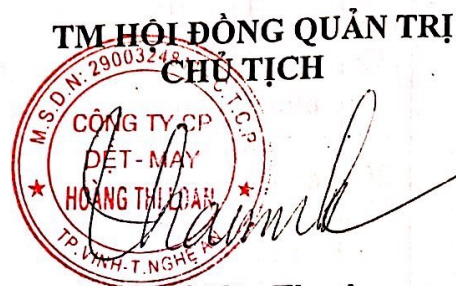 TM HỘI ĐỒNG QUẢN TRỊ
CHỦ TỊCH
M.S.D.N: 29003248
C.T.C.P
CÔNG TY CP
DỆT - MAY
HOÀNG THỊ LOAN
TP.VINH-T.NGHỆ AN